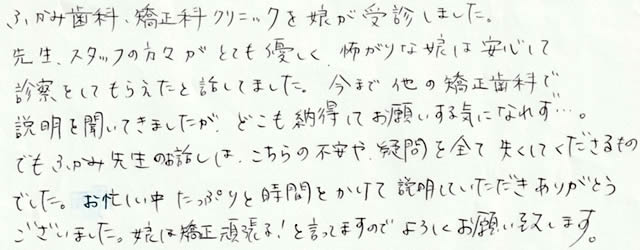 ふかみ歯科、矯正科クリニックを娘が受診しました。
先生、スタッフの方々がとても優しく、怖がりな娘は安心して
診察をしてもらえたと話してました。今まで他の矯正歯科で
説明を聞いてきましたが、どこも納得してお願いする気になれず…。
でもふかみ先生のお話しは、こちらの不安や、疑問を全て失くしてくださるもの
でした。お忙しい中たっぷりと時間をかけて説明していただきありがとう
ございました。娘は矯正頑張る！と言ってますのでよろしくお願い致します。